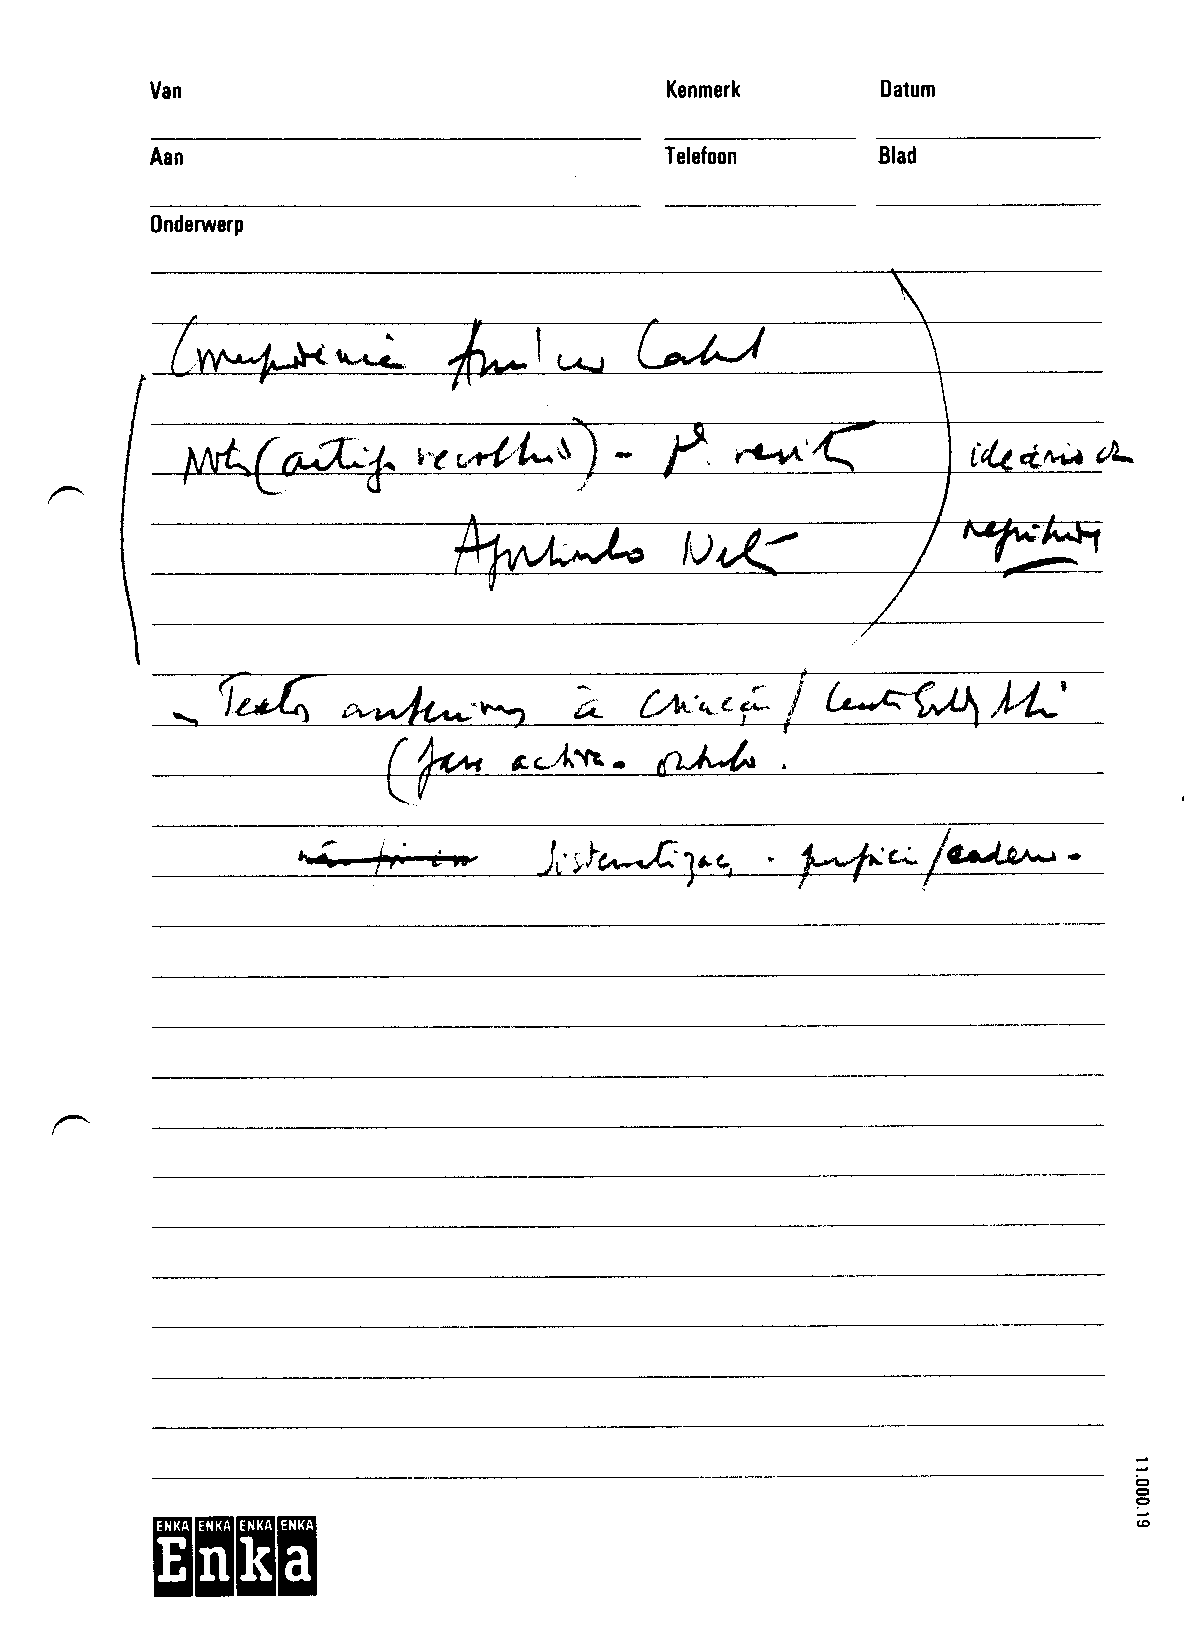 Van Kenmerk Datum
Aan Telefoon Blad
Onderwerp
Correspondência Amílcar Cabral
Notas (artigos recolhidos) - revista
ideário da
Agostinho Neto
negritude
- Textos anteriores à criação / Centro Est Afri
(fase activa
sistematizaç / caderno
11.000.19
ENKA ENKA ENKA ENKA
Enka